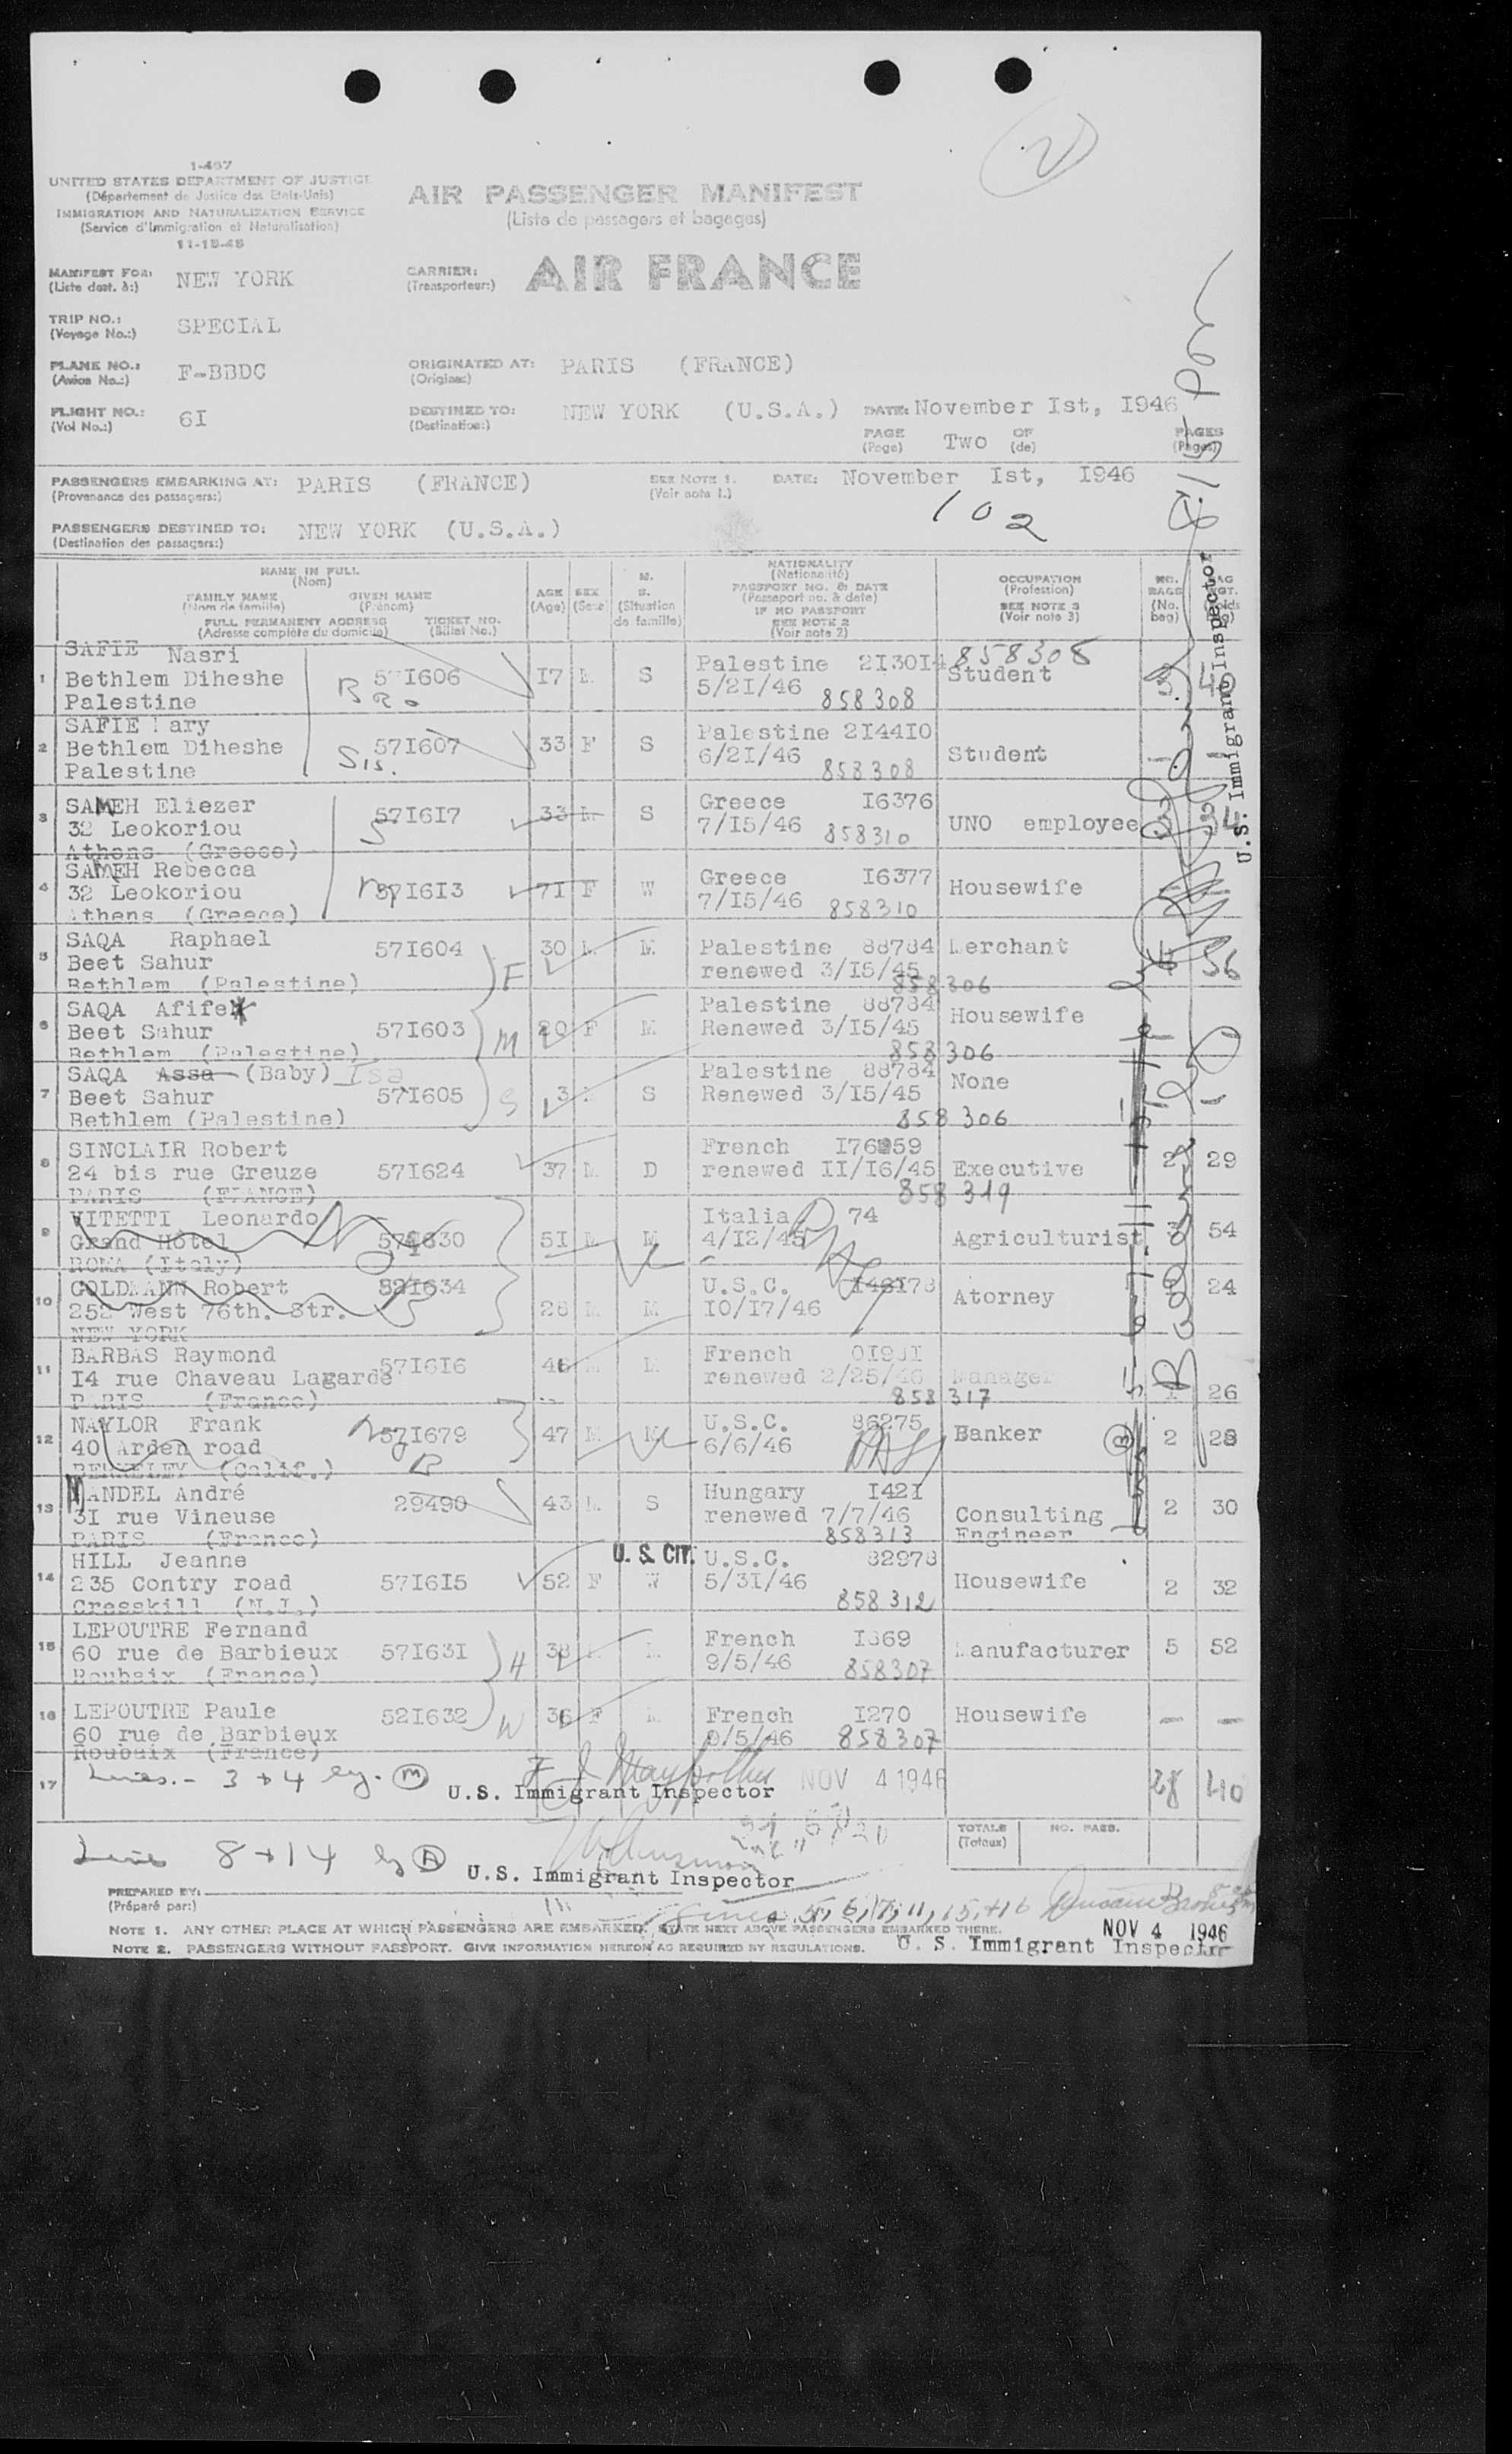 2
1-467
UNITED STATES DEPARTMENT OF JUSTICE
(Département de Justice des Etats-Unis)
IMMIGRATION AND NATURALIZATION SERVICE
(Service d'Immigration et Naturalisation)
11-15-45
AIR PASSENGER MANIFEST
(Liste de passagers et bagages)
MANIFEST FOR: NEW YORK
(Liste dest. à:)
CARRIER: AIR FRANCE
(Transporteur:)
TRIP NO.: SPECIAL
(Voyage No.:)
PLANE NO.: F-BBDC
(Avion No.:)
ORIGINATED AT: PARIS (FRANCE)
(Origine:)
FLIGHT NO.: 6I
(Vol No.:)
DESTINED TO: NEW YORK (U.S.A.) DATE: November Ist, I946
(Destination:)
PAGE Two OF PAGES
(Page) (de) (Pages)
PASSENGERS EMBARKING AT: PARIS (FRANCE) SEE NOTE 1. DATE: November Ist, I946
(Provenance des passagers:) (Voir note 1.)
102
PASSENGERS DESTINED TO: NEW YORK (U.S.A.)
(Destination des passagers:)
NAME IN FULL
(Nom)
FAMILY NAME GIVEN NAME
(Nom de famille) (Prénom)
FULL PERMANENT ADDRESS TICKET NO.
(Adresse complète du domicile) (Billet No.)
AGE
(Age)
SEX
(Sexe)
M.
S.
(Situation
de famille)
NATIONALITY
(Nationalité)
PASSPORT NO. & DATE
(Passeport no. & date)
IF NO PASSPORT
SEE NOTE 2
(Voir note 2)
OCCUPATION
(Profession)
SEE NOTE 3
(Voir note 3)
NO.
BAGS
(No.
bag)
858308
1 SAFIE Nasri
Bethlem Diheshe I606 I7 M S Palestine 2I30I4 Student 3 40
Palestine Bro 5/2I/46 858308
2 SAFIE ary
Bethlem Diheshe 57I607 33 F S Palestine 2I44I0 Student - -
Palestine Sis. 6/2I/46 858308
3 SAMEH Eliezer
32 Leokoriou 57I6I7 S 33 M S Greece I6376 UNO employee 34
Athens (Greece) 7/I5/46 858310
4 SAMEH Rebecca
32 Leokoriou M 57I6I3 7I F W Greece I6377 Housewife
Athens (Greece) 7/I5/46 858310
5 SAQA Raphael
Beet Sahur 57I604 F 30 M M Palestine 88784 Merchant 56
Bethlem (Palestine) renewed 3/I5/45 858306
6 SAQA Afife
Beet Sahur 57I603 M 20 F M Palestine 88784 Housewife
Bethlem (Palestine) Renewed 3/I5/45 858306
7 SAQA Assa (Baby) Isa
Beet Sahur 57I605 S 3 S Palestine 88784 None
Bethlem (Palestine) Renewed 3/I5/45 858306
8 SINCLAIR Robert
24 bis rue Greuze 57I624 37 M D French Executive 2 29
PARIS (FRANCE) renewed II/I6/45 858319
9 VITETTI Leonardo
Grand Hôtel 5I M M Italia 74 Agriculturist 3 54
ROMA (Italy) 4/I2/45
10 GOLDMANN Robert
252 West 76th. Str. 28 M M U.S.C. Atorney 24
NEW YORK I0/I7/46
11 BARBAS Raymond
I4 rue Chaveau Lagarde 57I6I6 46 M M French Manager 1 26
PARIS (France) renewed 2/25/46 858317
12 NAYLOR Frank
40 Arden road 57I679 47 M M U.S.C. 86275 Banker 2 28
BERKELEY (Calif.) 6/6/46
13 MANDEL André
3I rue Vineuse 29490 43 M S Hungary I42I Consulting 2 30
PARIS (France) renewed 7/7/46 858313 Engineer
14 HILL Jeanne U. S. CIT.
235 Contry road 57I6I5 52 F W U.S.C. 82978 Housewife 2 32
Cresskill (N.J.) 5/3I/46 858312
15 LEPOUTRE Fernand
60 rue de Barbieux 57I63I H 38 M French I369 Manufacturer 5 52
Roubaix (France) 9/5/46 858307
16 LEPOUTRE Paule
60 rue de Barbieux 52I632 W 36 F M French I270 Housewife - -
Roubaix (France) 9/5/46 858307
17 Lines.- 3+4 by. M NOV 4 1946 28 410
U.S. Immigrant Inspector
TOTALS NO. PASS.
(Totaux)
Lines 8+14 by A U.S. Immigrant Inspector
PREPARED BY:
(Préparé par:)
Lines 5, 6, 7, 11, 15, +16
NOTE 1. ANY OTHER PLACE AT WHICH PASSENGERS ARE EMBARKED. STATE NEXT ABOVE PASSENGERS EMBARKED THERE. NOV 4 1946
NOTE 2. PASSENGERS WITHOUT PASSPORT. GIVE INFORMATION HEREON AS REQUIRED BY REGULATIONS. U. S. Immigrant Inspector
U.S. Immigrant Inspector